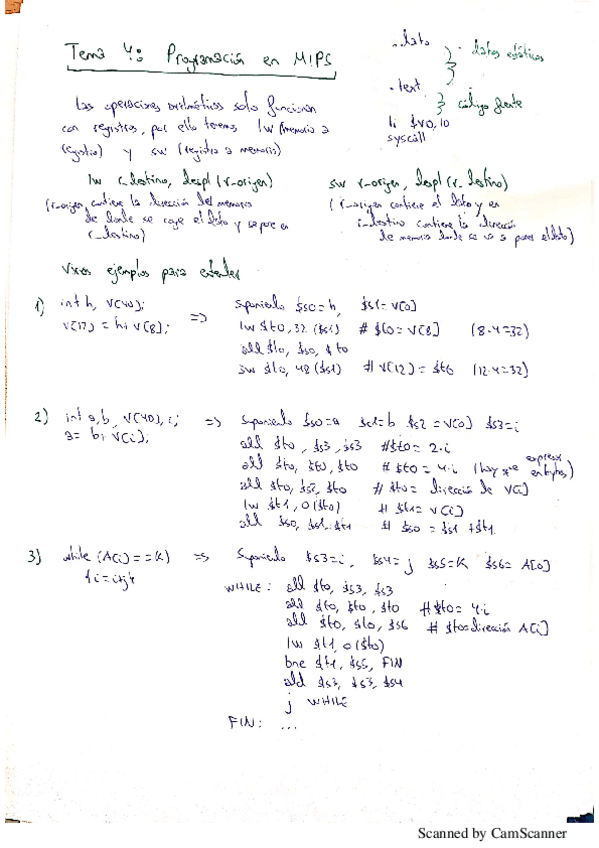 Tema 4: Programación en MIPS
.data } datos estáticos
.text } código fuente
li $v0, 10
syscall
Las operaciones aritméticas solo funcionan
con registros, por ello tenemos lw (memoria a
registro) y sw (registro a memoria)
lw r_destino, despl (r_origen)
(r_origen contiene la dirección de memoria
de donde se coge el dato y se pone en
r_destino)
sw r_origen, despl (r_destino)
(r_origen contiene el dato y en
r_destino contiene la dirección
de memoria donde se va a poner el dato)
Vamos ejemplos para entender
1) int h, V[40]; => Suponiendo $s0 = h, $s1 = V[0]
V[12] = h + V[8]; lw $t0, 32 ($s1) # $t0 = V[8] (8·4=32)
add $t0, $s0, $t0
sw $t0, 48 ($s1) # V[12] = $t0 (12·4=32)
2) int a, b, V[40], i; => Suponiendo $s0=a $s1=b $s2=V[0] $s3=i
a = b + V[i]; add $t0, $s3, $s3 #$t0 = 2·i
add $t0, $t0, $t0 # $t0 = 4·i (hay que expresar en bytes)
add $t0, $s2, $t0 # $t0 = dirección de V[i]
lw $t1, 0($t0) # $t1 = V[i]
add $s0, $s1, $t1 # $s0 = $s1 + $t1
3) while (A[i] == K) => Suponiendo $s3=i, $s4=j $s5=K $s6=A[0]
{ i = i+j }
WHILE: add $t0, $s3, $s3
add $t0, $t0, $t0 # $t0 = 4·i
add $t0, $t0, $s6 # $t0=dirección A[i]
lw $t1, 0($t0)
bne $t1, $s5, FIN
add $s3, $s3, $s4
j WHILE
FIN: ...
Scanned by CamScanner